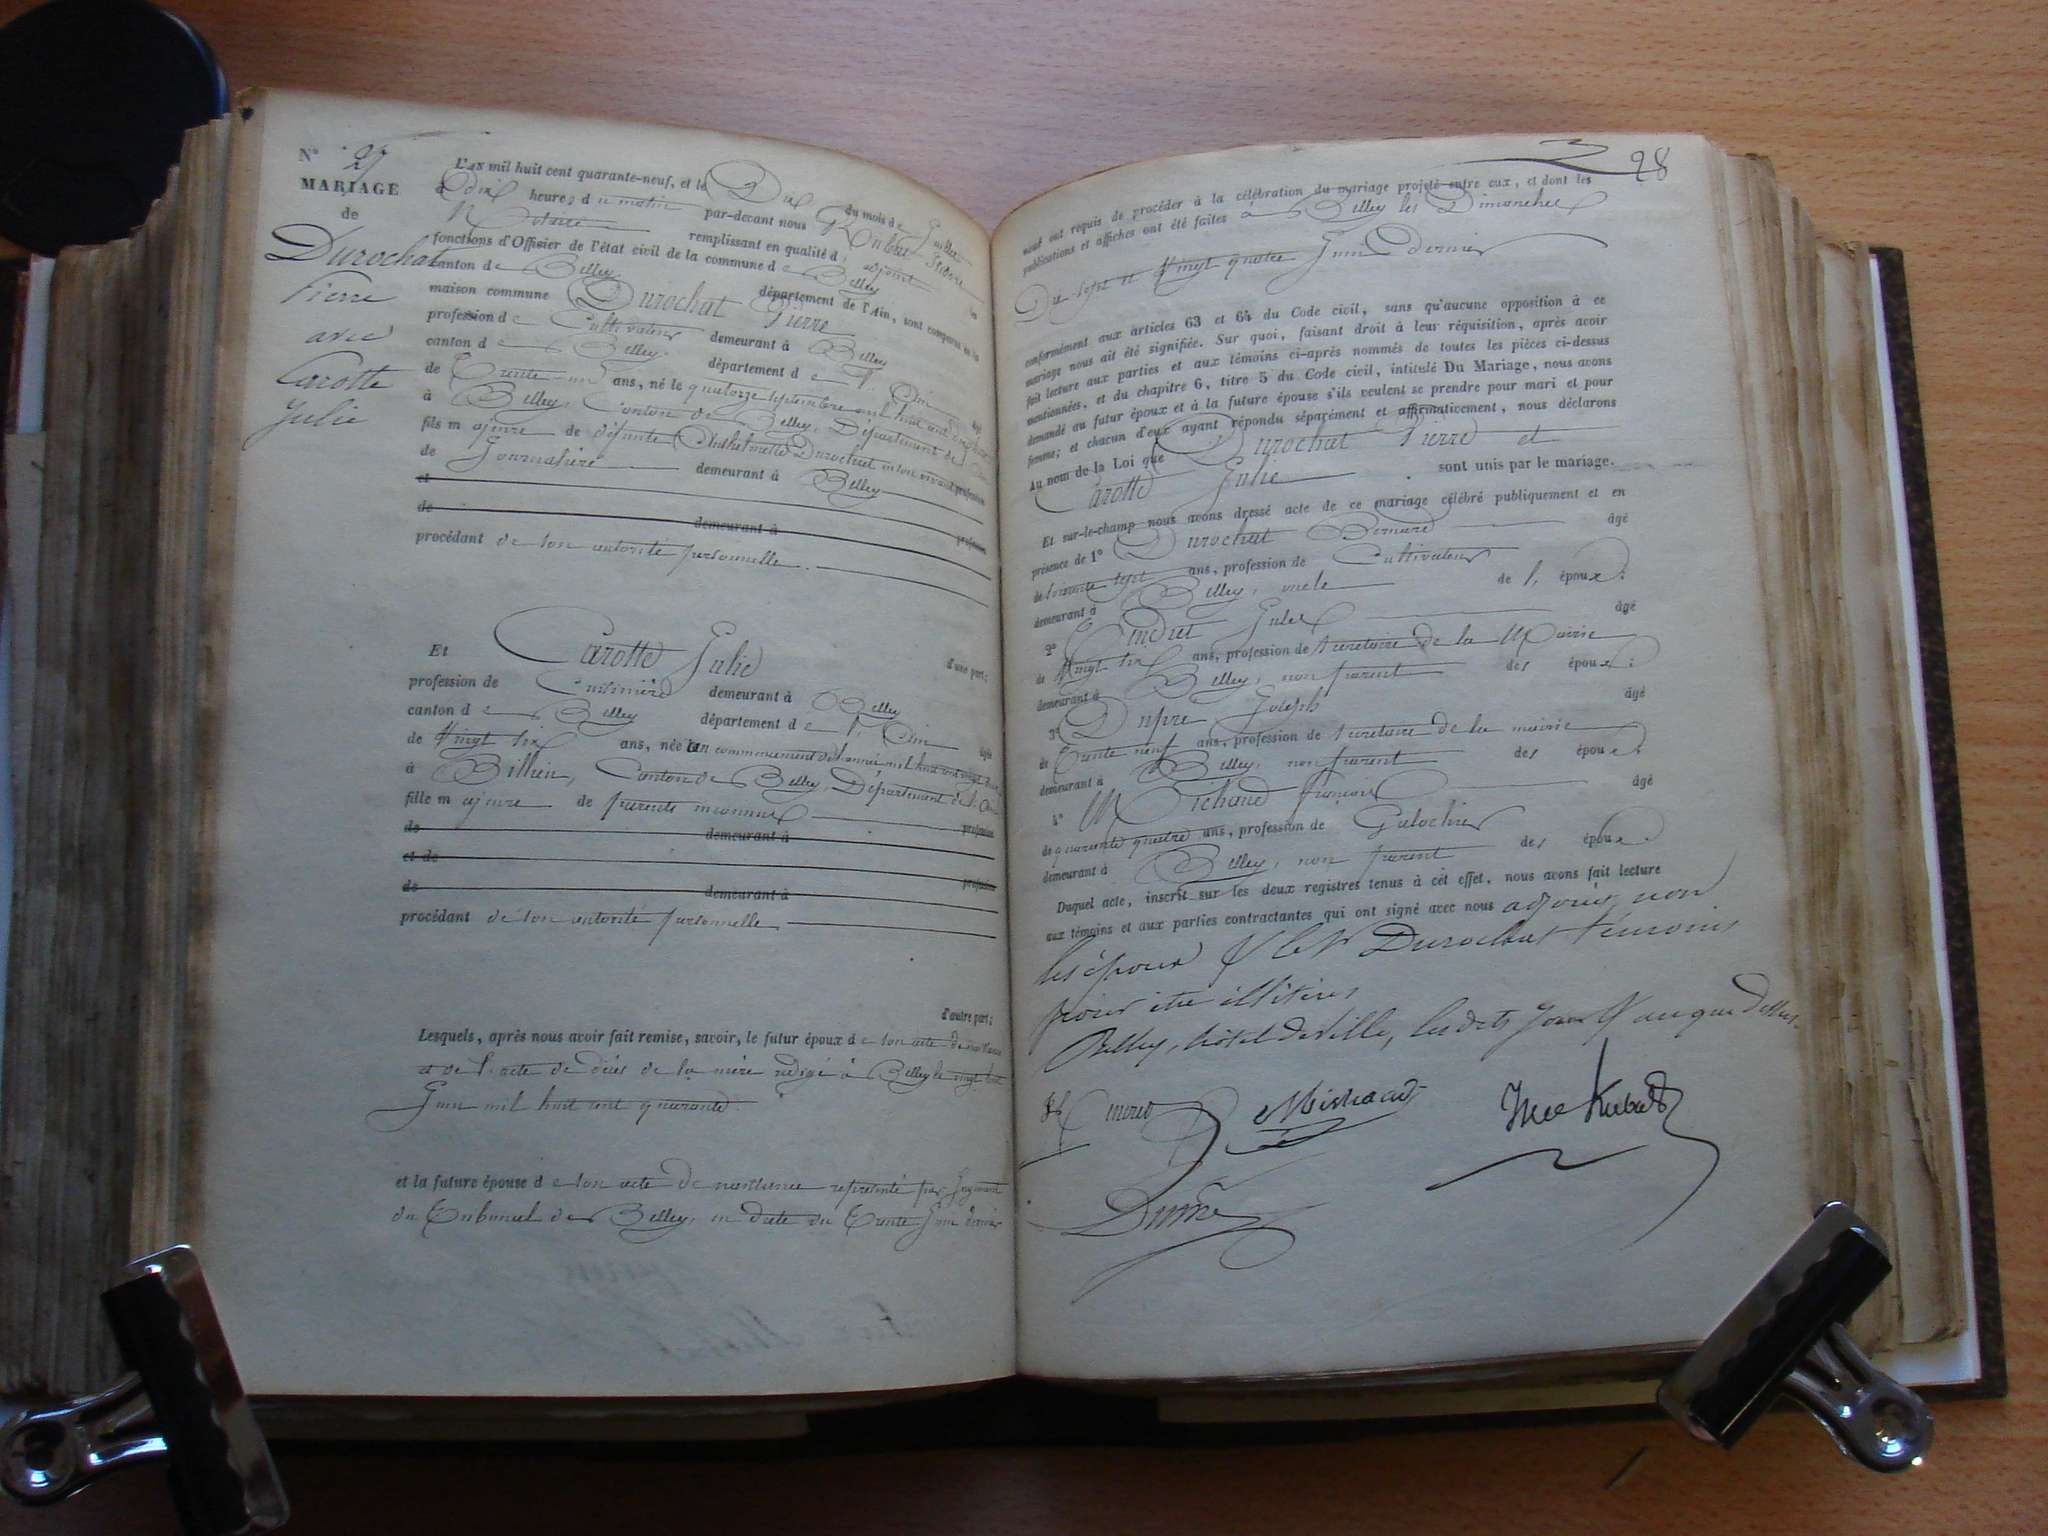 N° 27
MARIAGE
de
Durochat
Pierre
avec
Carotte
Julie
L'AN mil huit cent quarante-neuf, et le Dix du mois de Juillet
à dix heures du matin par-devant nous
Notaire remplissant en qualité d'adjoint les
fonctions d'Officier de l'état civil de la commune de Belley
canton de Belley département de l'Ain, sont comparus en la
maison commune Durochat Pierre
profession de Cultivateur demeurant à Belley
canton de Belley département de l'Ain âgé
de Trente-un ans, né le quatorze septembre mil huit cent
à Belley, Canton de Belley, Département de l'Ain
fils majeure de défunte Durochat en son vivant profession
de Journalière demeurant à Belley
et
de demeurant à profession
procédant de son autorité personnelle.
d'une part;
Et Carotte Julie
profession de Cuisinière demeurant à Belley
canton de Belley département de l'Ain âgée
de Vingt six ans, née au commencement de l'année mil huit cent vingt
à Billieu, Canton de Belley, Département de l'Ain
fille majeure de parents inconnus profession
de demeurant à
et de profession
de demeurant à
procédant de son autorité personnelle
d'autre part;
Lesquels, après nous avoir fait remise, savoir, le futur époux de son acte de naissance
et de l'acte de décès de la mère rédigé à Belley le vingt
Juin mil huit cent quarante.
et la future épouse de son acte de naissance représenté par Jugement
du Tribunal de Belley, en date du Trente Juin dernier
28
nous ont requis de procéder à la célébration du mariage projeté entre eux, et dont les
publications et affiches ont été faites à Belley les Dimanches
Dix sept et Vingt quatre Juin Dernier
conformément aux articles 63 et 64 du Code civil, sans qu'aucune opposition à ce
mariage nous ait été signifiée. Sur quoi, faisant droit à leur réquisition, après avoir
fait lecture aux parties et aux témoins ci-après nommés de toutes les pièces ci-dessus
mentionnées, et du chapitre 6, titre 5 du Code civil, intitulé Du Mariage, nous avons
demandé au futur époux et à la future épouse s'ils veulent se prendre pour mari et pour
femme; et chacun d'eux ayant répondu séparément et affirmativement, nous déclarons
Au nom de la Loi que Durochat Pierre et
Carotte Julie sont unis par le mariage.
Et sur-le-champ nous avons dressé acte de ce mariage célébré publiquement et en
présence de 1° Durochat Bernard âgé
de soixante sept ans, profession de Cultivateur
demeurant à Belley, oncle de l'époux.
2° Cindret Jules âgé
de Vingt six ans, profession de secretaire de la Mairie
demeurant à Belley, non parent des époux;
3° Dupré Joseph âgé
de Trente neuf ans, profession de secretaire de la mairie
demeurant à Belley, non parent des époux.
4° Michaud François âgé
de quarante quatre ans, profession de Galochier
demeurant à Belley, non parent des époux.
Duquel acte, inscrit sur les deux registres tenus à cet effet, nous avons fait lecture
aux témoins et aux parties contractantes qui ont signé avec nous adjoint, non
les époux & le Sr Durochat témoins
pour être illitérés
Belley, hôtel de Ville, les dits Jour & an que dessus.
Michaud
Dupré